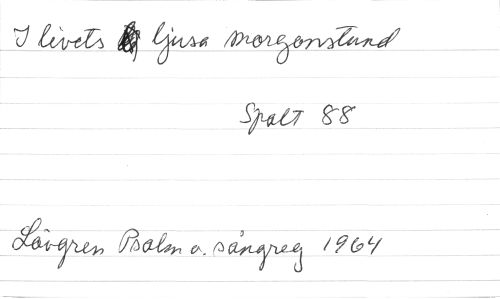 I livets ljusa morgonstund
Spalt 88
Lövgren Psalm o. sångreg 1964